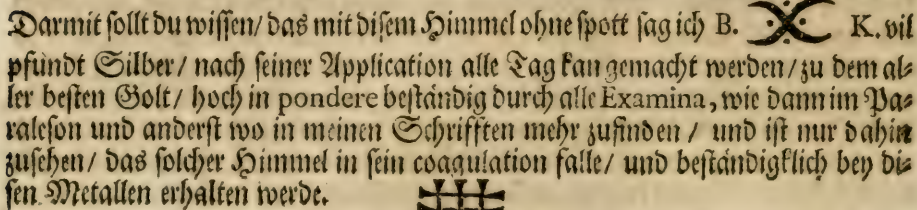 Darmit sollt du wissen/ das mit disem Himmel ohne spott sag ich B. K. vil
pfundt Silber/ nach seiner Application alle Tag kan gemacht werden/ zu dem al-
ler besten Golt/ hoch in pondere beständig durch alle Examina, wie dann im Pa-
ralefon und anderst wo in meinen Schrifften mehr zufinden / und ist nur dahin
zusehen/ das solcher Himmel in sein coagulation falle/ und beständigklich bey di-
sen Metallen erhalten werde.